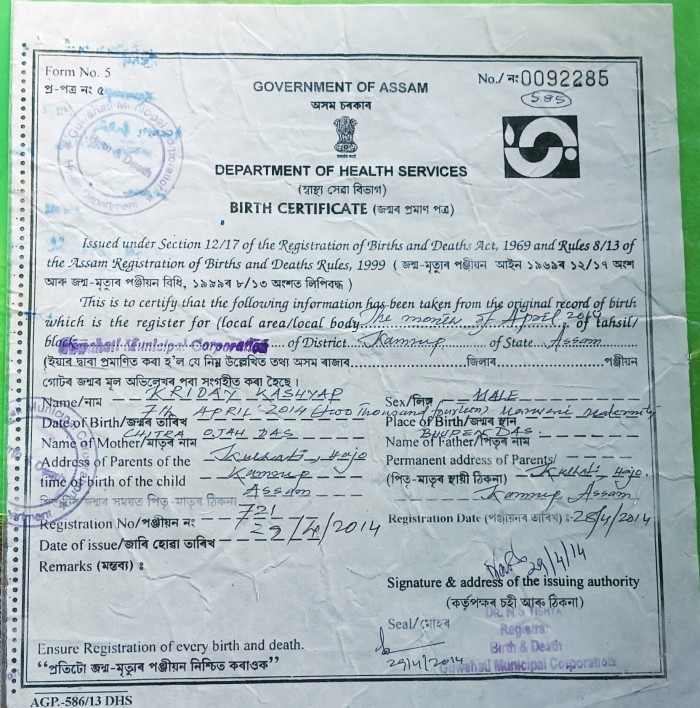 Form No. 5
প্ৰ-পত্ৰ নং ৫
No./ নং 0092285
585
GOVERNMENT OF ASSAM
অসম চৰকাৰ
Guwahati Municipal Corporation
Birth & Death
Health Department
DEPARTMENT OF HEALTH SERVICES
(স্বাস্থ্য সেৱা বিভাগ)
BIRTH CERTIFICATE (জন্মৰ প্ৰমাণ পত্ৰ)
Issued under Section 12/17 of the Registration of Births and Deaths Act, 1969 and Rules 8/13 of
the Assam Registration of Births and Deaths Rules, 1999 ( জন্ম-মৃত্যুৰ পঞ্জীয়ন আইন ১৯৬৯ৰ ১২/১৭ অংশ
আৰু জন্ম-মৃত্যুৰ পঞ্জীয়ন বিধি, ১৯৯৯ৰ ৮/১৩ অংশত লিপিবদ্ধ )
This is to certify that the following information has been taken from the original record of birth
which is the register for (local area/local body The month of April, 2014 of tahsil/
block Guwahati Municipal Corporation of District Kamrup of State Assam
(ইয়াৰ দ্বাৰা প্ৰমাণিত কৰা হ'ল যে নিম্ন উল্লেখিত তথ্য অসম ৰাজ্যৰ জিলাৰ পঞ্জীয়ন
গোটৰ জন্মৰ মূল অভিলেখৰ পৰা সংগৃহীত কৰা হৈছে।
Name/নাম KRIDAY KASHYAP Sex/লিঙ্গ MALE
Date of Birth/জন্মৰ তাৰিখ 7th APRIL 2014 (two Thousand fourteen) Place of Birth/জন্মৰ স্থান Marwari Maternity
Name of Mother/মাতৃৰ নাম CHITRA OJAH DAS Name of Father/পিতৃৰ নাম BHUPEN DAS
Address of Parents of the Kulhati, Hajo Permanent address of Parents/
time of birth of the child Kamrup (পিতৃ-মাতৃৰ স্থায়ী ঠিকনা) Kulhati Hajo.
শিশুটিৰ জন্মৰ সময়ত পিতৃ-মাতৃৰ ঠিকনা Assam Kamrup Assam
Registration No/পঞ্জীয়ন নং 721 Registration Date (পঞ্জীয়নৰ তাৰিখ) :-28/4/2014
Date of issue/জাৰি হোৱা তাৰিখ 29/4/2014
Remarks (মন্তব্য) :
29/4/14
Signature & address of the issuing authority
(কৰ্তৃপক্ষৰ চহী আৰু ঠিকনা)
Seal/মোহৰ
Registrar
Birth & Death
Guwahati Municipal Corporation
29/4/2014
Ensure Registration of every birth and death.
“প্ৰতিটো জন্ম-মৃত্যুৰ পঞ্জীয়ন নিশ্চিত কৰাওক”
AGP.-586/13 DHS